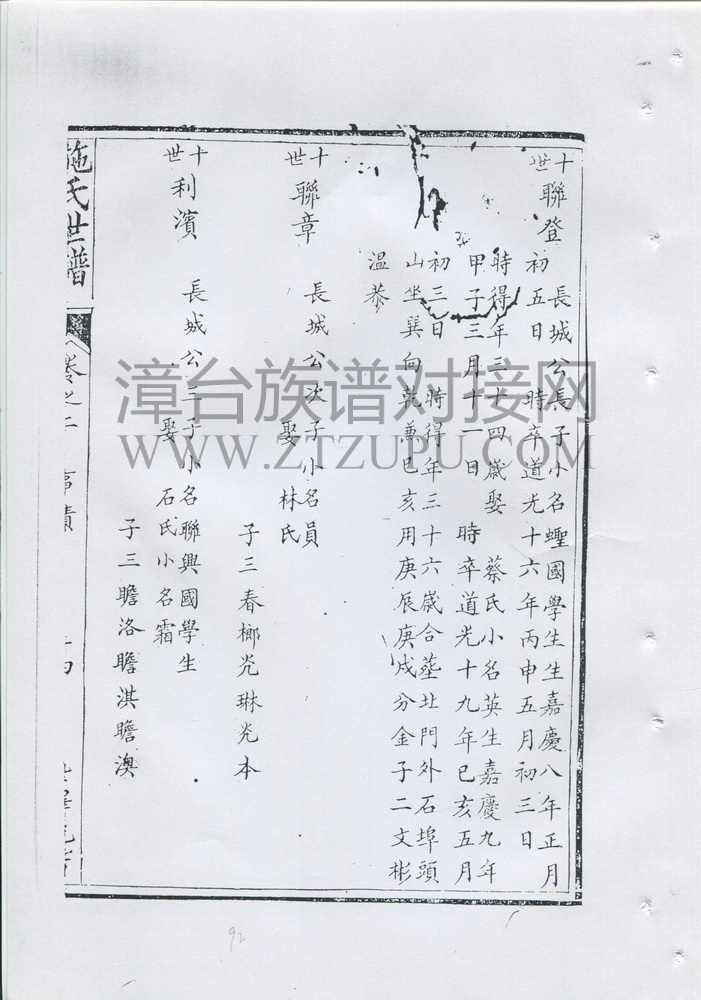 十世 聯登
長城公長子小名蟶國學生生嘉慶八年正月
初五日 時卒道光十六年丙申五月初三日
時得年三十四歲娶 蔡氏小名英生嘉慶九年
甲子三月十一日 時卒道光十九年已亥五月
初三日 時得年三十六歲合塟北門外石埠頭
山坐巽向乾兼已亥用庚辰庚戌分金子二文彬
温恭
十世 聯章
長城公次子小名員
娶林氏
子三春梛光琳光本
十世 利濱
長城公三子小名聯興國學生
娶 石氏小名霜
子三瞻洛瞻淇瞻澳
施氏世譜
卷之二 事蹟
漳台族谱对接网
WWW.ZTZUPU.COM
92